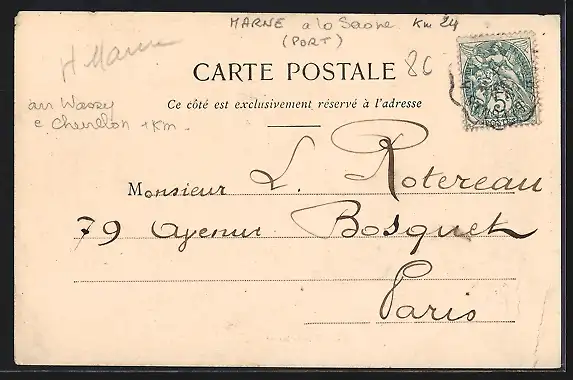 MARNE a lo Saone Km 24
(PORT)
H Marne
80
CARTE POSTALE
Ce côté est exclusivement réservé à l'adresse
arr Wassy
c Chevillon 1Km.
Monsieur L. Rotereau
79 Avenue Bosquet
Paris
5